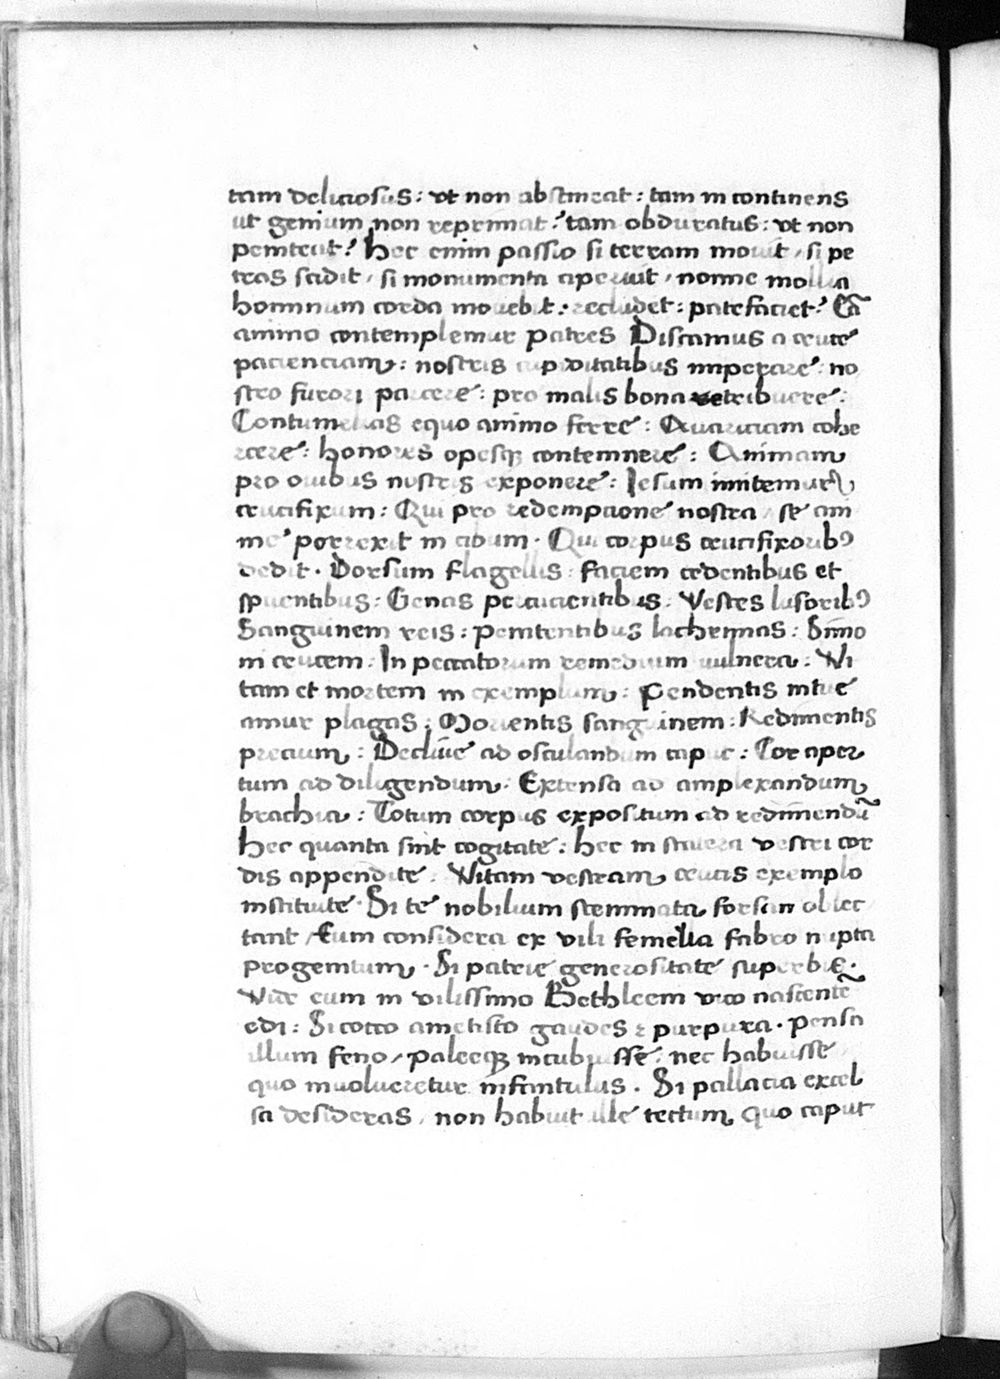 tam deliciosus : vt non abstineat : tam in continens
ut genium non reprimat ? tam obduratus : vt non
peniteat ? hec enim passio si terram mouit / si pe
tras scidit / si monumenta aperuit / nonne mollia
hominum corda mouebit : recludet : patefaciet ? Eā
animo contemplemur patres Discamus a cruce
pacienciam : nostris cupiditatibus imperare : no
stro furori parcere : pro malis bona retribuere :
Contumelias equo animo ferre : Auariciam cohe
rcere : honores opesqꝫ contemnere : Animam
pro ouibus nostris exponere : Iesum imitemur
crucifixum : Qui pro redempcione nostra / se ani
me porrexit in cibum . Qui corpus crucifixoribꝰ
dedit . Dorsum flagellis : faciem cedentibus et
spuentibus : Genas percucientibus : Vestes lusoribꝰ
Sanguinem reis : penitentibus lachrimas : Sinno
in crucem : In peccatorum remedium uulnera : Vi
tam et mortem in exemplum : Pendentis intue
amur plagas : Morientis sanguinem : Redimentis
precium : Decliue ad osculandum caput : Cor aper
tum ad diligendum . Extensa ad amplexandum
brachia : Totum corpus expositum ad redimendū
hec quanta sint cogitate : hec in statera vestri cor
dis appendite : Vitam vestram crucis exemplo
instituite . Si te nobilium stemmata forsan oblec
tant / Eum considera ex vili femella fabro nupta
progenitum . Si patrie generositate superbis .
Vide eum in vilissimo Bethleem vico nascentē
edi : Si cocco ametisto gaudes ⁊ purpura . pensa
illum feno / paleeqꝫ incubuisse : nec habuisse
quo inuolueretur infantulus . Si pallacia excel
sa desideras / non habuit ille tectum quo caput